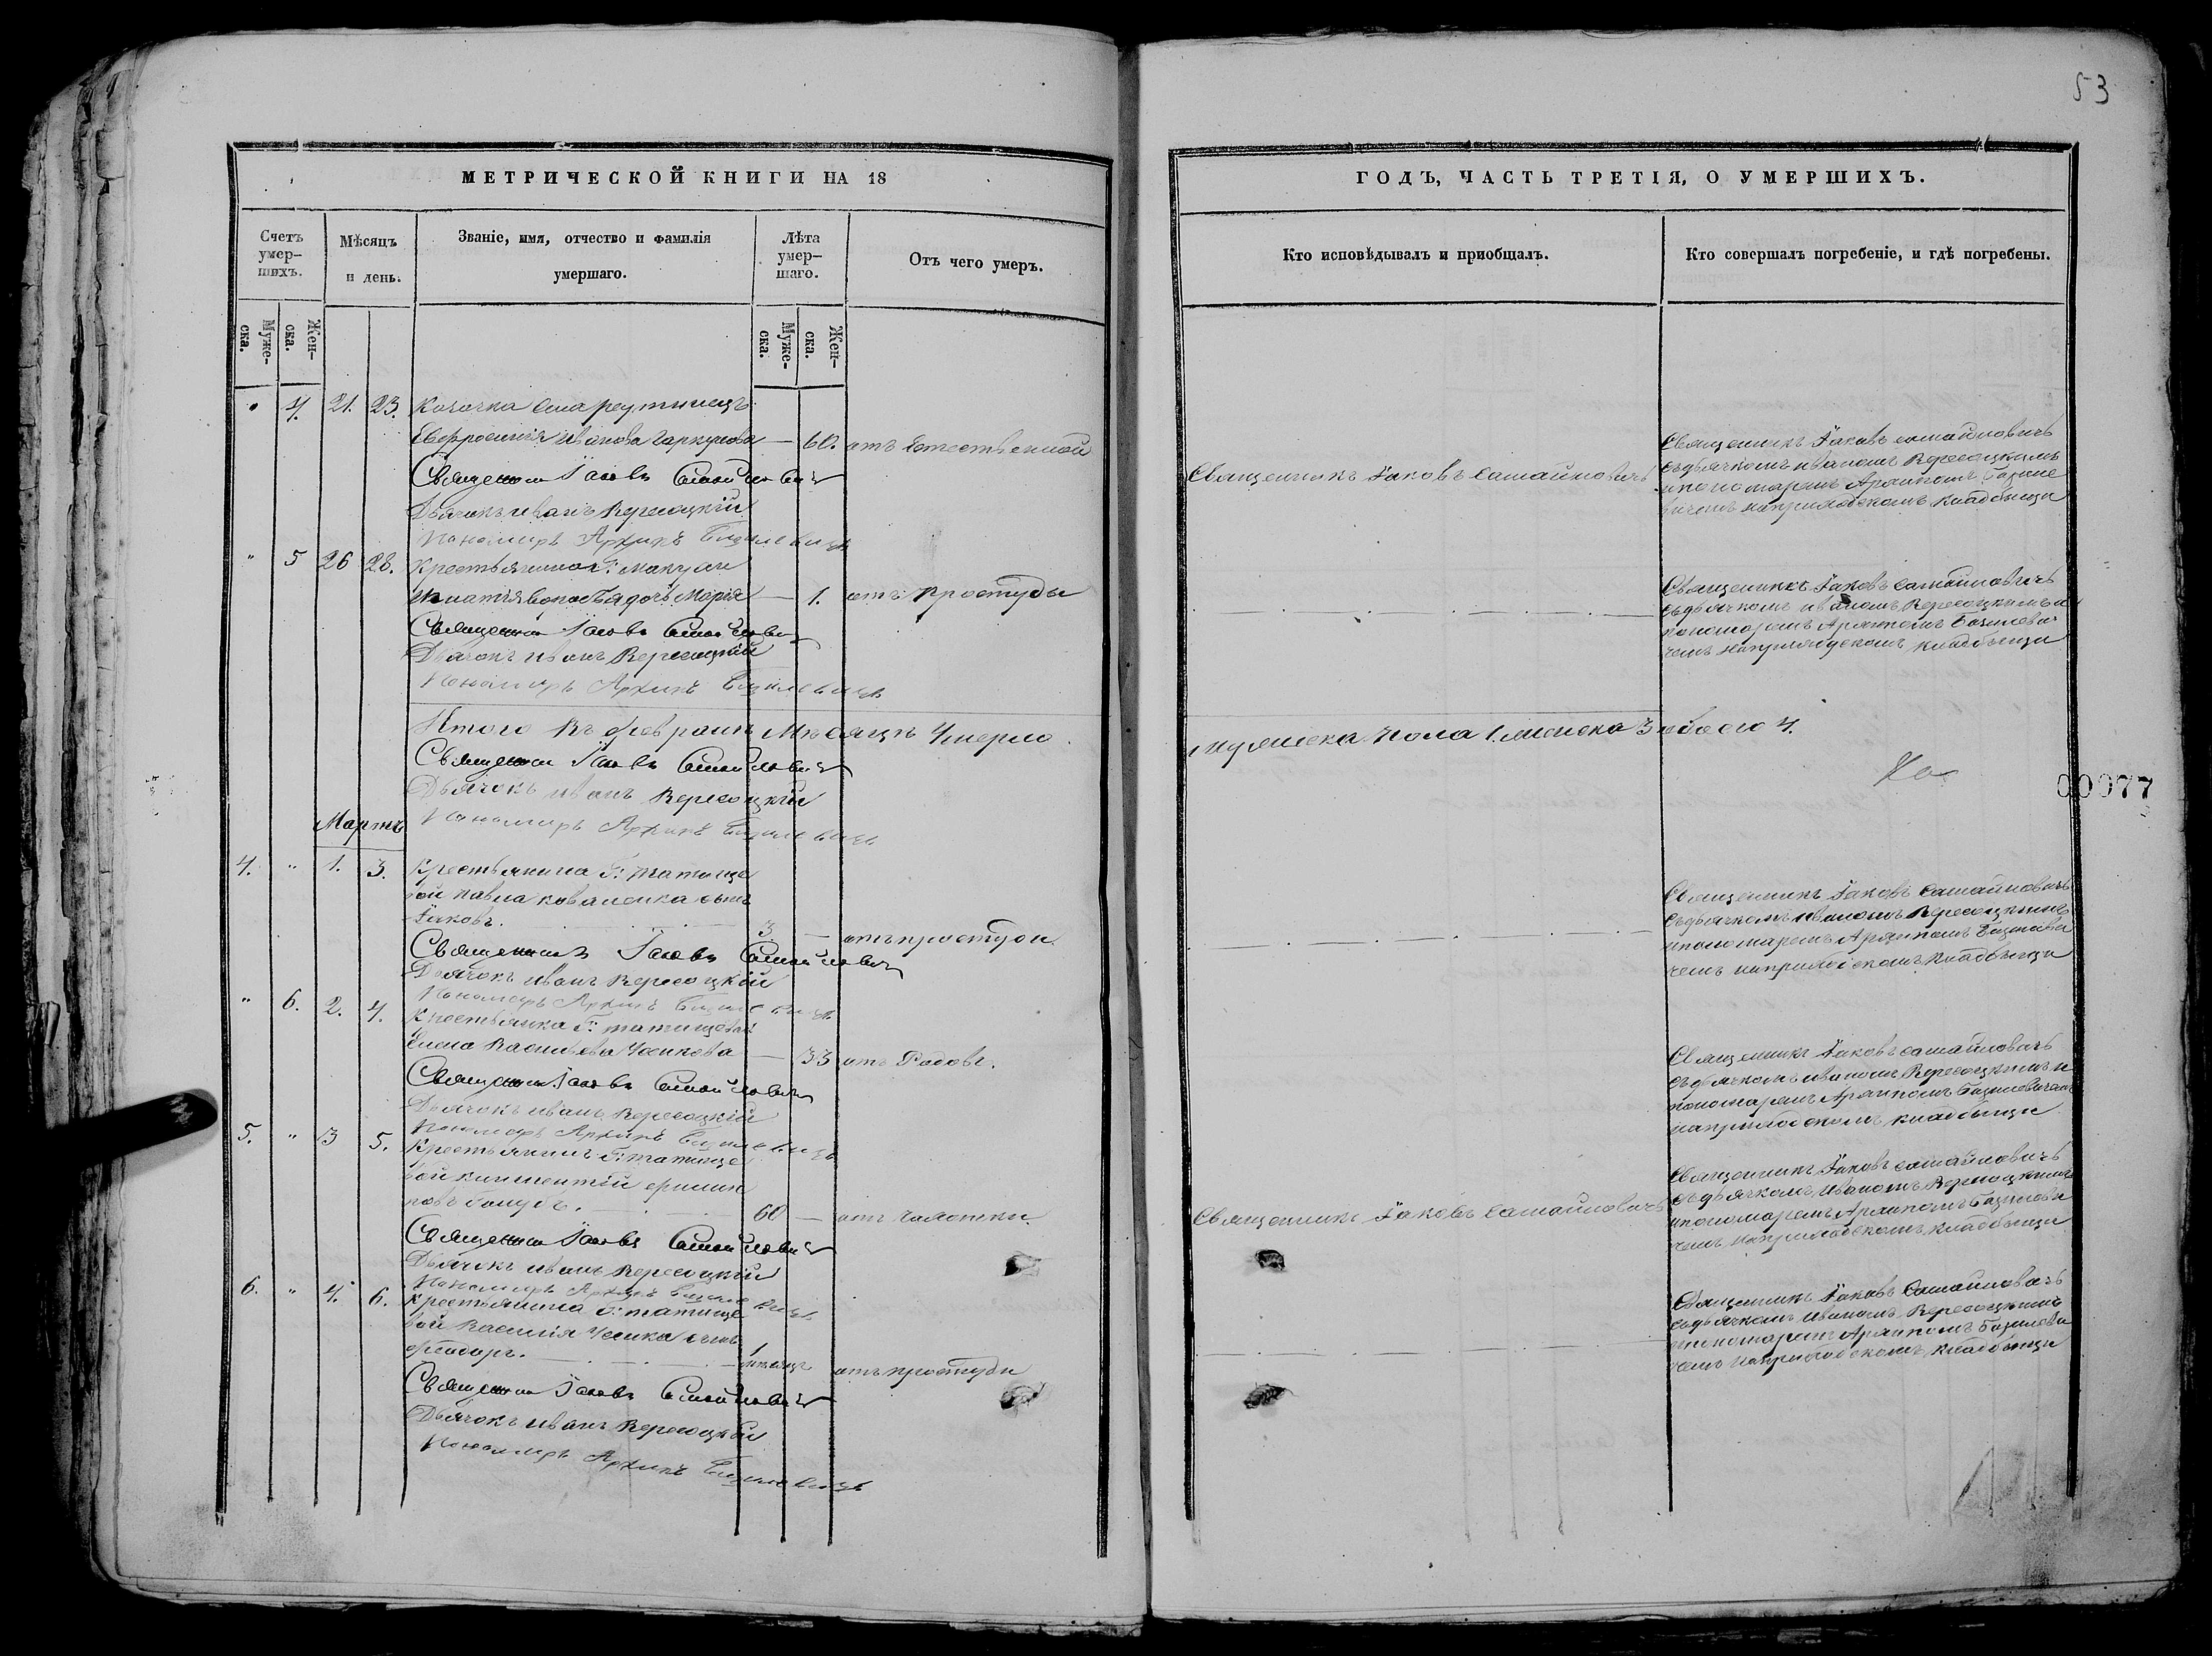 53
МЕТРИЧЕСКОЙ КНИГИ НА 18
Счетъ умер-шихъ.
Мѣсяцъ и день.
Званіе, имя, отчество и фамилія умершаго.
Лѣта умер-шаго.
Отъ чего умеръ.
Муже-ска.
Жен-ска.
Муже-ска.
Жен-ска.
4. 21. 23. Козачка
Евфросинія Иванова — 60. отъ Естественной
Священникъ Іаковъ Самойловичъ
Дьячокъ Иванъ Вересоцкій
Пономарь Архипъ Базилевичъ
" 5 26 28. Крестьянина Г:
дочь Марія — 1. отъ простуды
Священникъ Іаковъ Самойловичъ
Дьячокъ Иванъ Вересоцкій
Пономарь Архипъ Базилевичъ
Итого въ февралѣ Мѣсяцѣ Умерло
Священникъ Іаковъ Самойловичъ
Дьячокъ Иванъ Вересоцкій
Пономарь Архипъ Базилевичъ
Мартъ
4. " 1. 3. Крестьянина Г: Татище
вой Павла Коваленка сынъ
Іаковъ. 3 — отъ простуды.
Священникъ Іаковъ Самойловичъ
Дьячокъ Иванъ Вересоцкій
Пономарь Архипъ Базилевичъ
" 6. 2. 4. Крестьянка Г: Татищевой
Елена Васильева — 33 отъ Родовъ.
Священникъ Іаковъ Самойловичъ
Дьячокъ Иванъ Вересоцкій
Пономарь Архипъ Базилевичъ
5. " 3 5. Крестьянинъ Г: Татище
вой Климентій
Голубъ. 60 — отъ Чахотки.
Священникъ Іаковъ Самойловичъ
Дьячокъ Иванъ Вересоцкій
Пономарь Архипъ Базилевичъ
6. " 4. 6. Крестьянина Г: Татище
вой Василія сынъ
Феодоръ. 1 мѣсяцъ отъ простуды
Священникъ Іаковъ Самойловичъ
Дьячокъ Иванъ Вересоцкій
Пономарь Архипъ Базилевичъ
ГОДЪ, ЧАСТЬ ТРЕТІЯ, О УМЕРШИХЪ.
Кто исповѣдывалъ и приобщалъ.
Кто совершалъ погребеніе, и гдѣ погребены.
Священникъ Іаковъ Самойловичъ
Священникъ Іаковъ Самойловичъ
съ дьячкомъ Иваномъ Вересоцкимъ
и пономаремъ Архипомъ Базиле
вичемъ на приходскомъ кладбищи
Священникъ Іаковъ Самойловичъ
съ дьячкомъ Иваномъ Вересоцкимъ и
пономаремъ Архипомъ Базилеви
чемъ на приходскомъ кладбищи
мужеска пола 1. женска 3 обоего 4.
00077
Священникъ Іаковъ Самойловичъ
съ дьячкомъ Иваномъ Вересоцкимъ
и пономаремъ Архипомъ Базилеви
чемъ на приходскомъ кладбищи
Священникъ Іаковъ Самойловичъ
съ дьячкомъ Иваномъ Вересоцкимъ и
пономаремъ Архипомъ Базилевичемъ
на приходскомъ кладбищи
Священникъ Іаковъ Самойловичъ
Священникъ Іаковъ Самойловичъ
съ дьячкомъ Иваномъ Вересоцкимъ
и пономаремъ Архипомъ Базилеви
чемъ на приходскомъ кладбищи
Священникъ Іаковъ Самойловичъ
съ дьячкомъ Иваномъ Вересоцкимъ
и пономаремъ Архипомъ Базилеви
чемъ на приходскомъ кладбищи